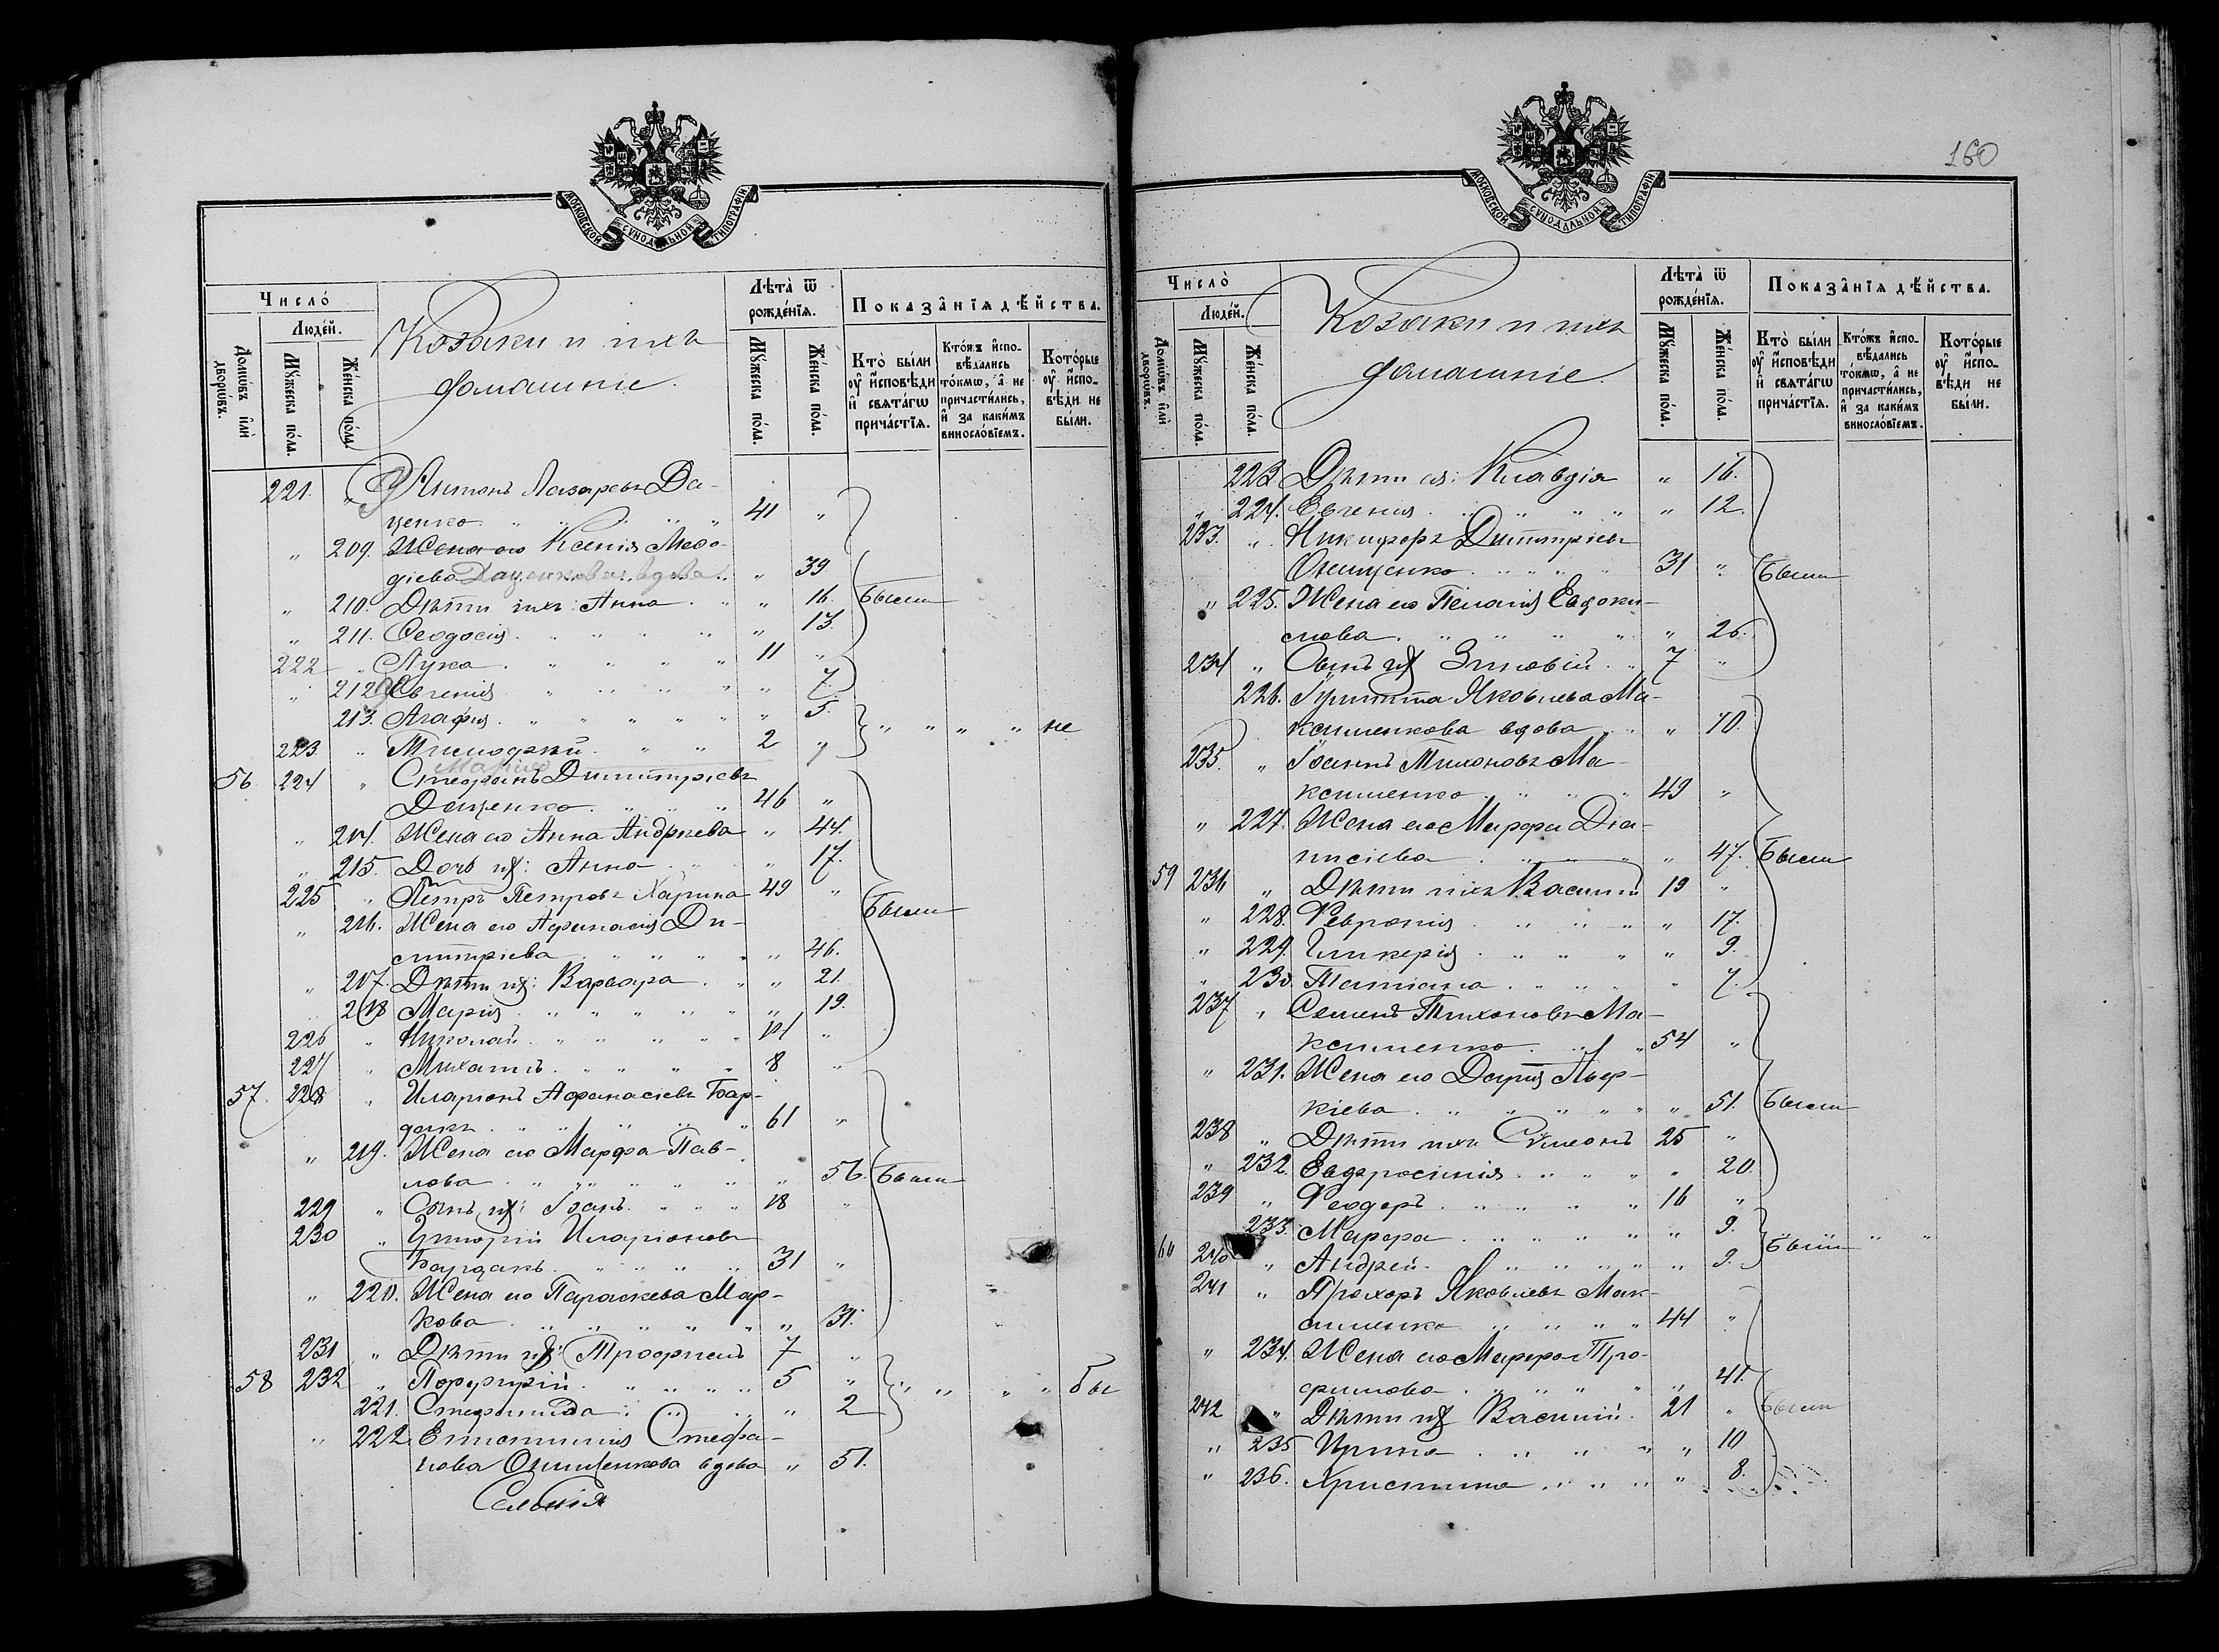 160
МОСКОВСКОЙ СУНОДАЛЬНОЙ ТИПОГРАФІИ
Число̀
Людéй.
Домѡ́въ и҆лѝ дворѡ́въ.
Мꙋ́жеска по́ла.
Же́нска по́ла.
Козаки и ихъ
домашніе.
Лѣта̀ ѿ рожде́нїѧ.
Мꙋ́жеска по́ла.
Же́нска по́ла.
Показа̂нїѧ дѣ́йства.
Кто̀ бы́ли оу҆ и҆́сповѣди и҆ свѧта́гѡ прича́стїѧ.
Кто́жъ и҆сповѣ́дались то́кмѡ, а҆ не причасти́лись, и҆ за каки́мъ виносло́вїемъ.
Кото́рые оу҆ и҆́сповѣди не бы́ли.
221. „ Антонъ Лазаревъ Да-
ценко 41 „
„ 209. Жена его Ксенія Мефо-
діева Даценкова вдова „ 39
„ 210. Дѣти ихъ: Анна „ 16. Были
„ 211. Ѳеодосія „ 13.
222 „ Лука 11 „
„ 212 Евгенія „ 7
213. Агафія „ 5. „ „ „ „ не
223. „ Тимоѳей 2 „
Марія
56 224 „ Стефанъ Димитріевъ
Даценко 46 „
„ 214. Жена его Анна Андреева „ 44.
„ 215. Дочь их: Анна „ 17.
225 „ Петръ Петровъ Харина 49 „
„ 216. Жена его Афанасія Ди- Были
митріева „ 46.
„ 217. Дѣти их: Варвара „ 21.
„ 218 Марія „ 19.
226 „ Николай 14 „
227 „ Михаилъ 8 „
57. 228 „ Иларіонъ Афанасіевъ Бар-
дакъ 61 „
„ 219. Жена его Марфа Пав-
лова „ 56. Были
229 „ Сынъ их: Іоанъ 18 „
230 „ Григорій Иларіоновъ
Бардакъ 31 „
„ 220. Жена его Параскева Мар-
кова „ 31.
231 „ Дѣти их: Трофимъ 7 „
58 232 „ Порфирій 5 „ „ „ „ „ бы
221. Стефанида „ 2
„ 222. Епистимія Стефа-
нова Онищенкова вдова „ 51.
МОСКОВСКОЙ СУНОДАЛЬНОЙ ТИПОГРАФІИ
Число̀
Людéй.
Домѡ́въ и҆лѝ дворѡ́въ.
Мꙋ́жеска по́ла.
Же́нска по́ла.
Козаки и ихъ
домашніе.
Лѣта̀ ѿ рожде́нїѧ.
Мꙋ́жеска по́ла.
Же́нска по́ла.
Показа̂нїѧ дѣ́йства.
Кто̀ бы́ли оу҆ и҆́сповѣди и҆ свѧта́гѡ прича́стїѧ.
Кто́жъ и҆сповѣ́дались то́кмѡ, а҆ не причасти́лись, и҆ за каки́мъ виносло́вїемъ.
Кото́рые оу҆ и҆́сповѣди не бы́ли.
223. Дѣти ея: Клавдія „ 16.
„ 224. Евгенія „ 12.
233. „ Никифоръ Димитріевъ
Онищенко 31 „ Были
„ 225. Жена его Пелагія Евдоки-
мова „ 26.
234 „ Сынъ их Зиновій 7 „
226. Іулитта Яковлева Ма-
ксименкова вдова „ 70.
235. „ Іоаннъ Тихоновъ Ма-
ксименко 49 „
„ 227. Жена его Марфа Діо-
нисіева „ 47. Были
59 236 „ Дѣти ихъ Василій 19 „
„ 228. Февронія „ 17.
„ 229. Гликерія „ 9.
„ 230 Татіана „ 7.
237 „ Семенъ Тихоновъ Ма-
ксименко 54 „
„ 231. Жена его Дарія Авер-
кіева „ 51. Были
238 „ Дѣти ихъ Сѵмеонъ 25 „
„ 232. Евфросинія „ 20.
239 „ Феодоръ 16 „
233. Марфа „ 9.
60 240 „ Андрей „ 9. Были „ „
241 „ Прохоръ Яковлевъ Мак-
сименко 44 „
„ 234. Жена его Марфа Тро-
фимова „ 41.
242 „ Дѣти их Василій 21 „ Были
„ 235 Ирина „ 10
„ 236. Христина „ 8.